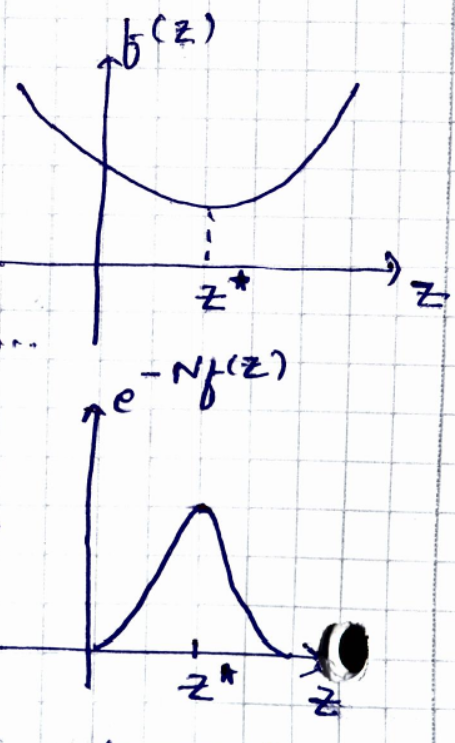 f(z)
z*
z
e^{-Nf(z)}
z*
z